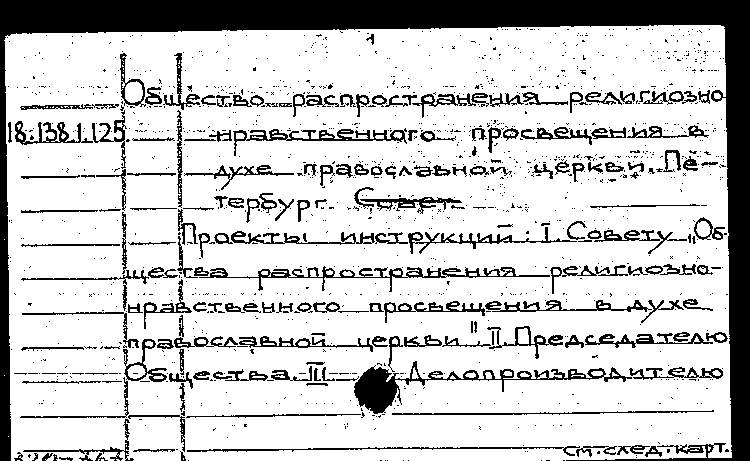 Общество распространения религиозно-
18.138.1.125 нравственного просвещения в
духе православной церкви. Пе-
тербург. Совет.
Проекты инструкций: I. Совету „Об-
щества распространения религиозно-
нравственного просвещения в духе
православной церкви" II. Председателю
Общества. III. Делопроизводителю
См. след. карт.